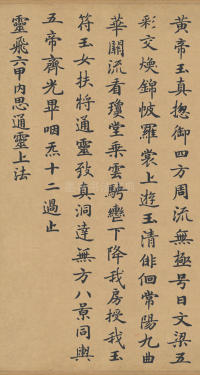 黃帝玉真揔御四方周流無極号日文梁五
彩交煥錦帔羅裳上遊玉清俳佪常陽九曲
華關流看瓊堂乘雲騁轡下降我房授我玉
符玉女扶持通靈致真洞達無方八景同輿
五帝齊光畢咽炁十二過止
靈飛六甲內思通靈上法